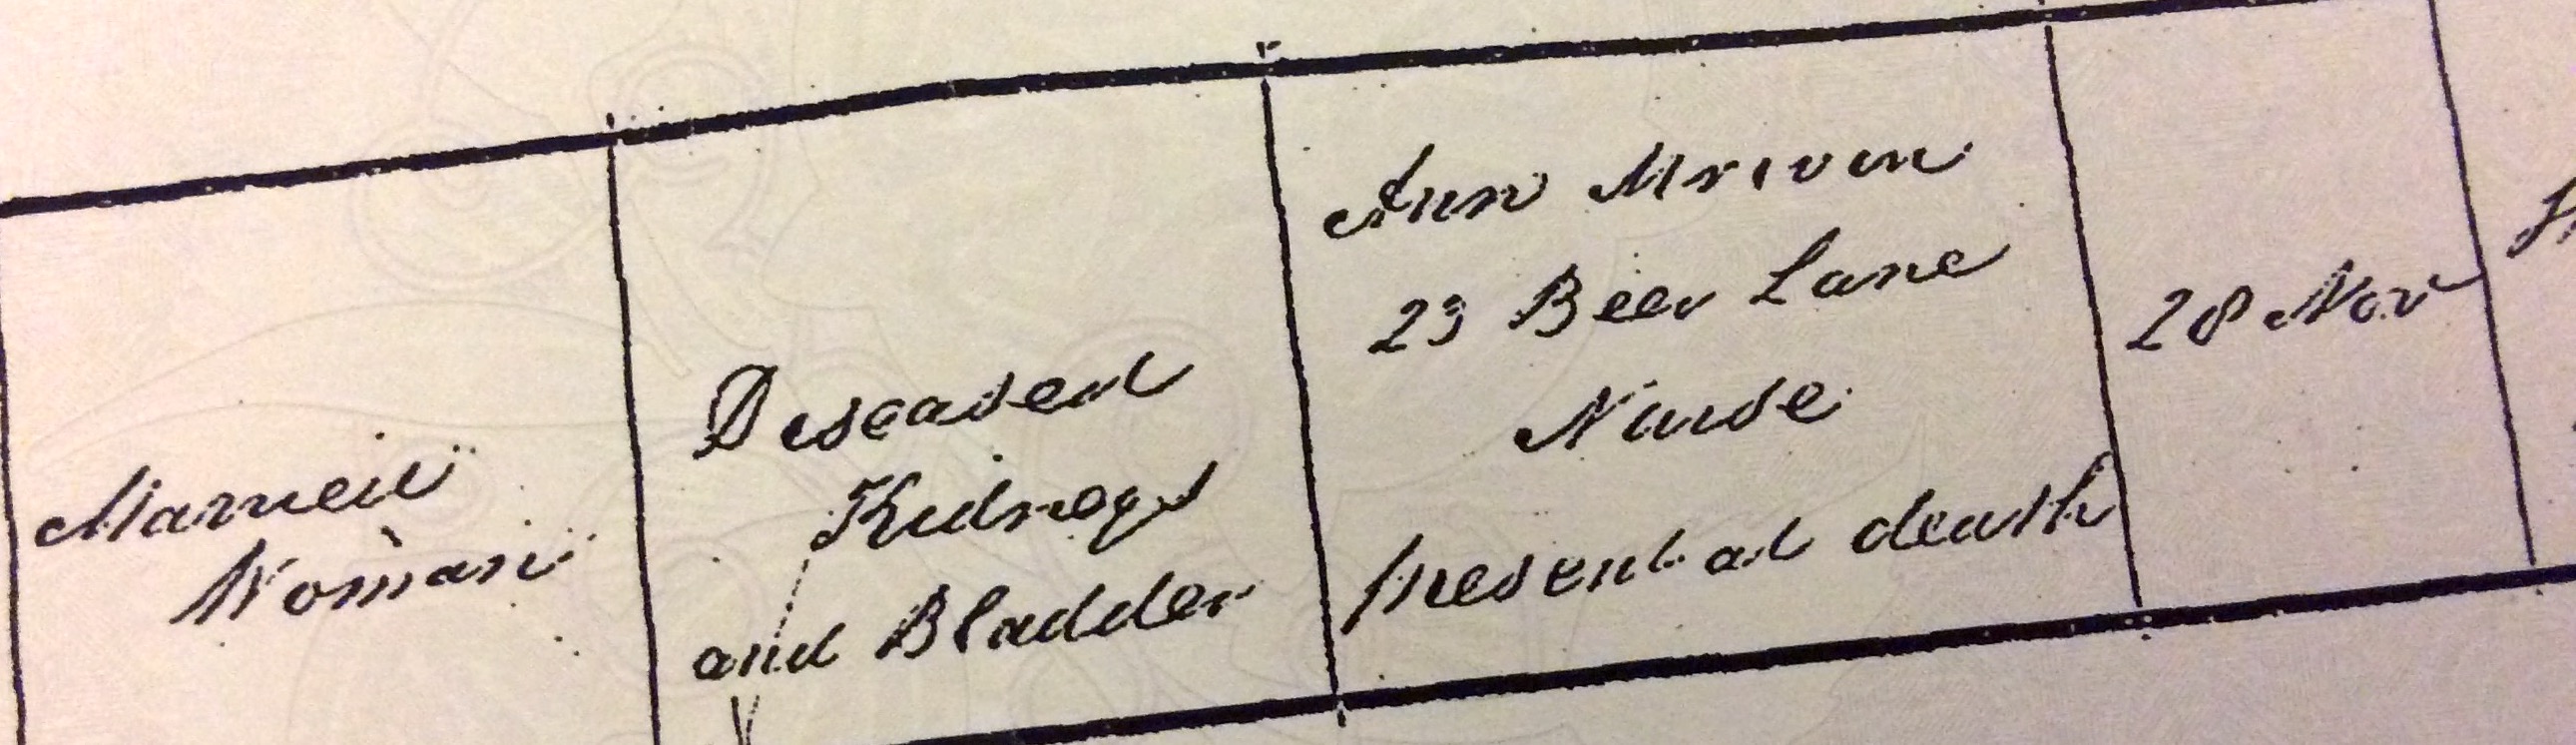 Married
Woman
Diseased
Kidneys
and Bladder
Ann
23 Beer Lane
Nurse
present at death
28 Nov